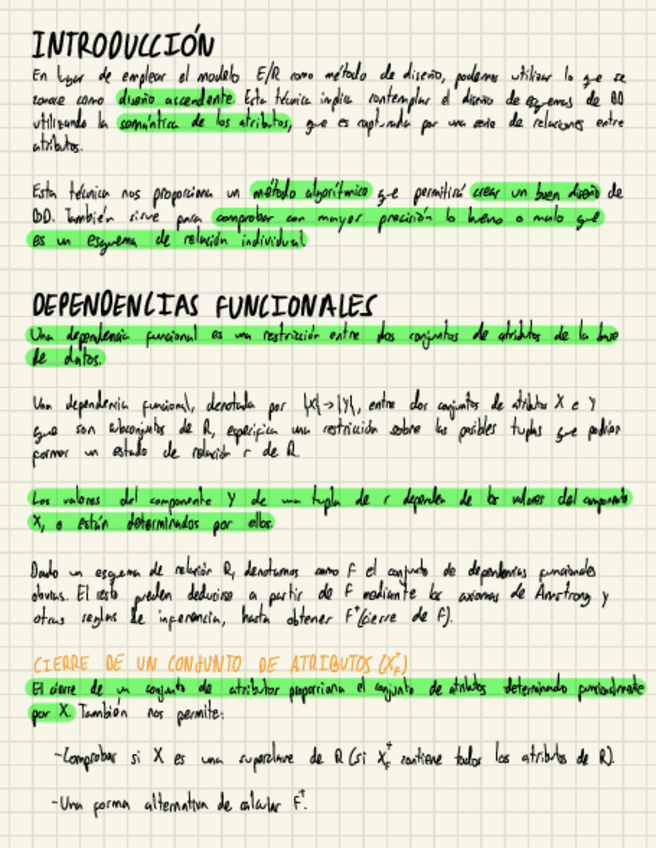 INTRODUCCIÓN
En lugar de emplear el modelo E/R como método de diseño, podemos utilizar lo que se
conoce como diseño ascendente. Esta técnica implica contemplar el diseño de esquemas de BD
utilizando la semántica de los atributos, que es capturada por una serie de relaciones entre
atributos.
Esta técnica nos proporciona un método algorítmico que permitirá crear un buen diseño de
BD. También sirve para comprobar con mayor precisión lo bueno o malo que
es un esquema de relación individual
DEPENDENCIAS FUNCIONALES
Una dependencia funcional es una restricción entre dos conjuntos de atributos de la base
de datos.
Una dependencia funcional, denotada por |X|→|Y|, entre dos conjuntos de atributos X e Y
que son subconjuntos de R, especifica una restricción sobre las posibles tuplas que podrían
formar un estado de relación r de R
Los valores del componente Y de una tupla de r dependen de los valores del componente
X, o están determinados por ellos.
Dado un esquema de relación R, denotamos como F el conjunto de dependencias funcionales
obvias. El resto pueden deducirse a partir de F mediante los axiomas de Amstrong y
otras reglas de inferencia, hasta obtener F⁺(cierre de F).
CIERRE DE UN CONJUNTO DE ATRIBUTOS (X⁺F)
El cierre de un conjunto de atributos proporciona el conjunto de atributos determinado funcionalmente
por X. También nos permite:
-Comprobar si X es una superclave de R (si X⁺F contiene todos los atributos de R).
-Una forma alternativa de calcular F⁺.